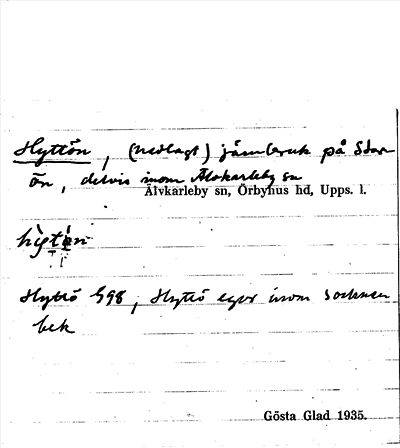 Hyttön, (nedlagt) järnbruk på Stor-
ön, delvis inom Älvkarleby sn
Älvkarleby sn, Örbyhus hd, Upps. l.
hỳtö̀n
Hyttö G98, Hyttö egor inom socknen
bek
Gösta Glad 1935.